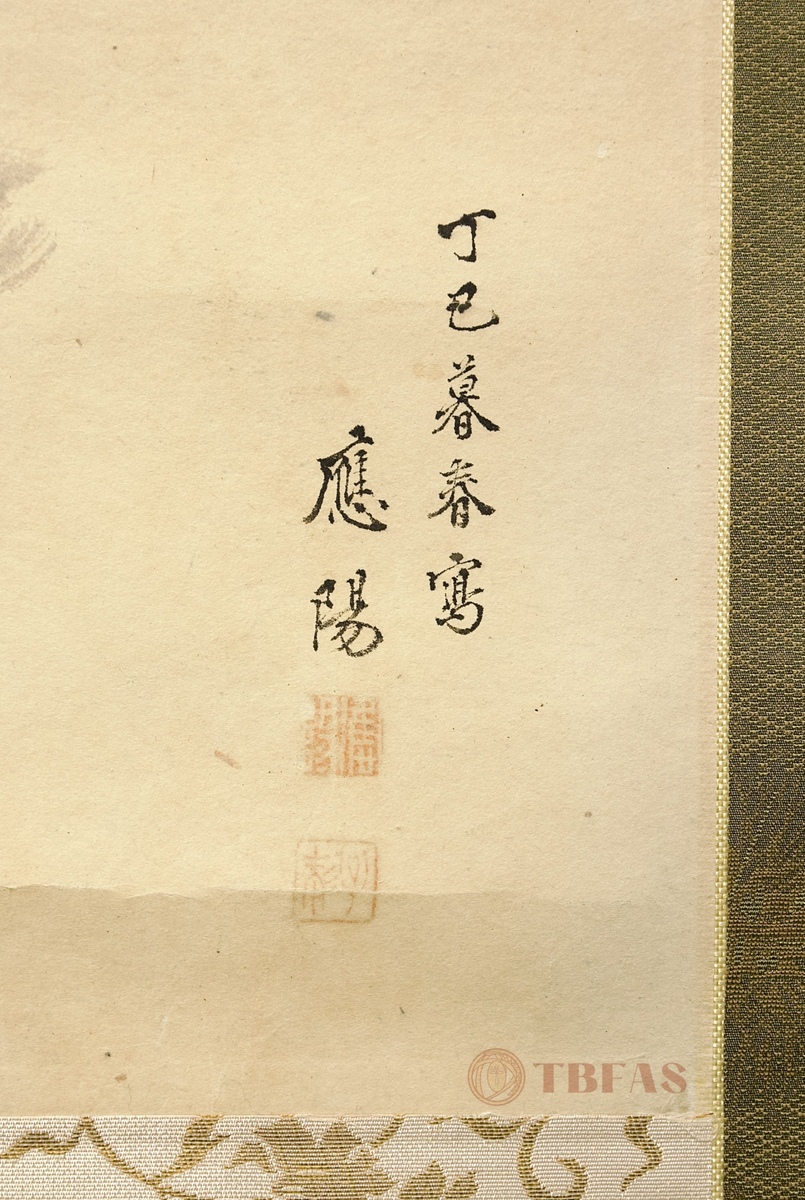 丁巳暮春寫
應陽
TBFAS